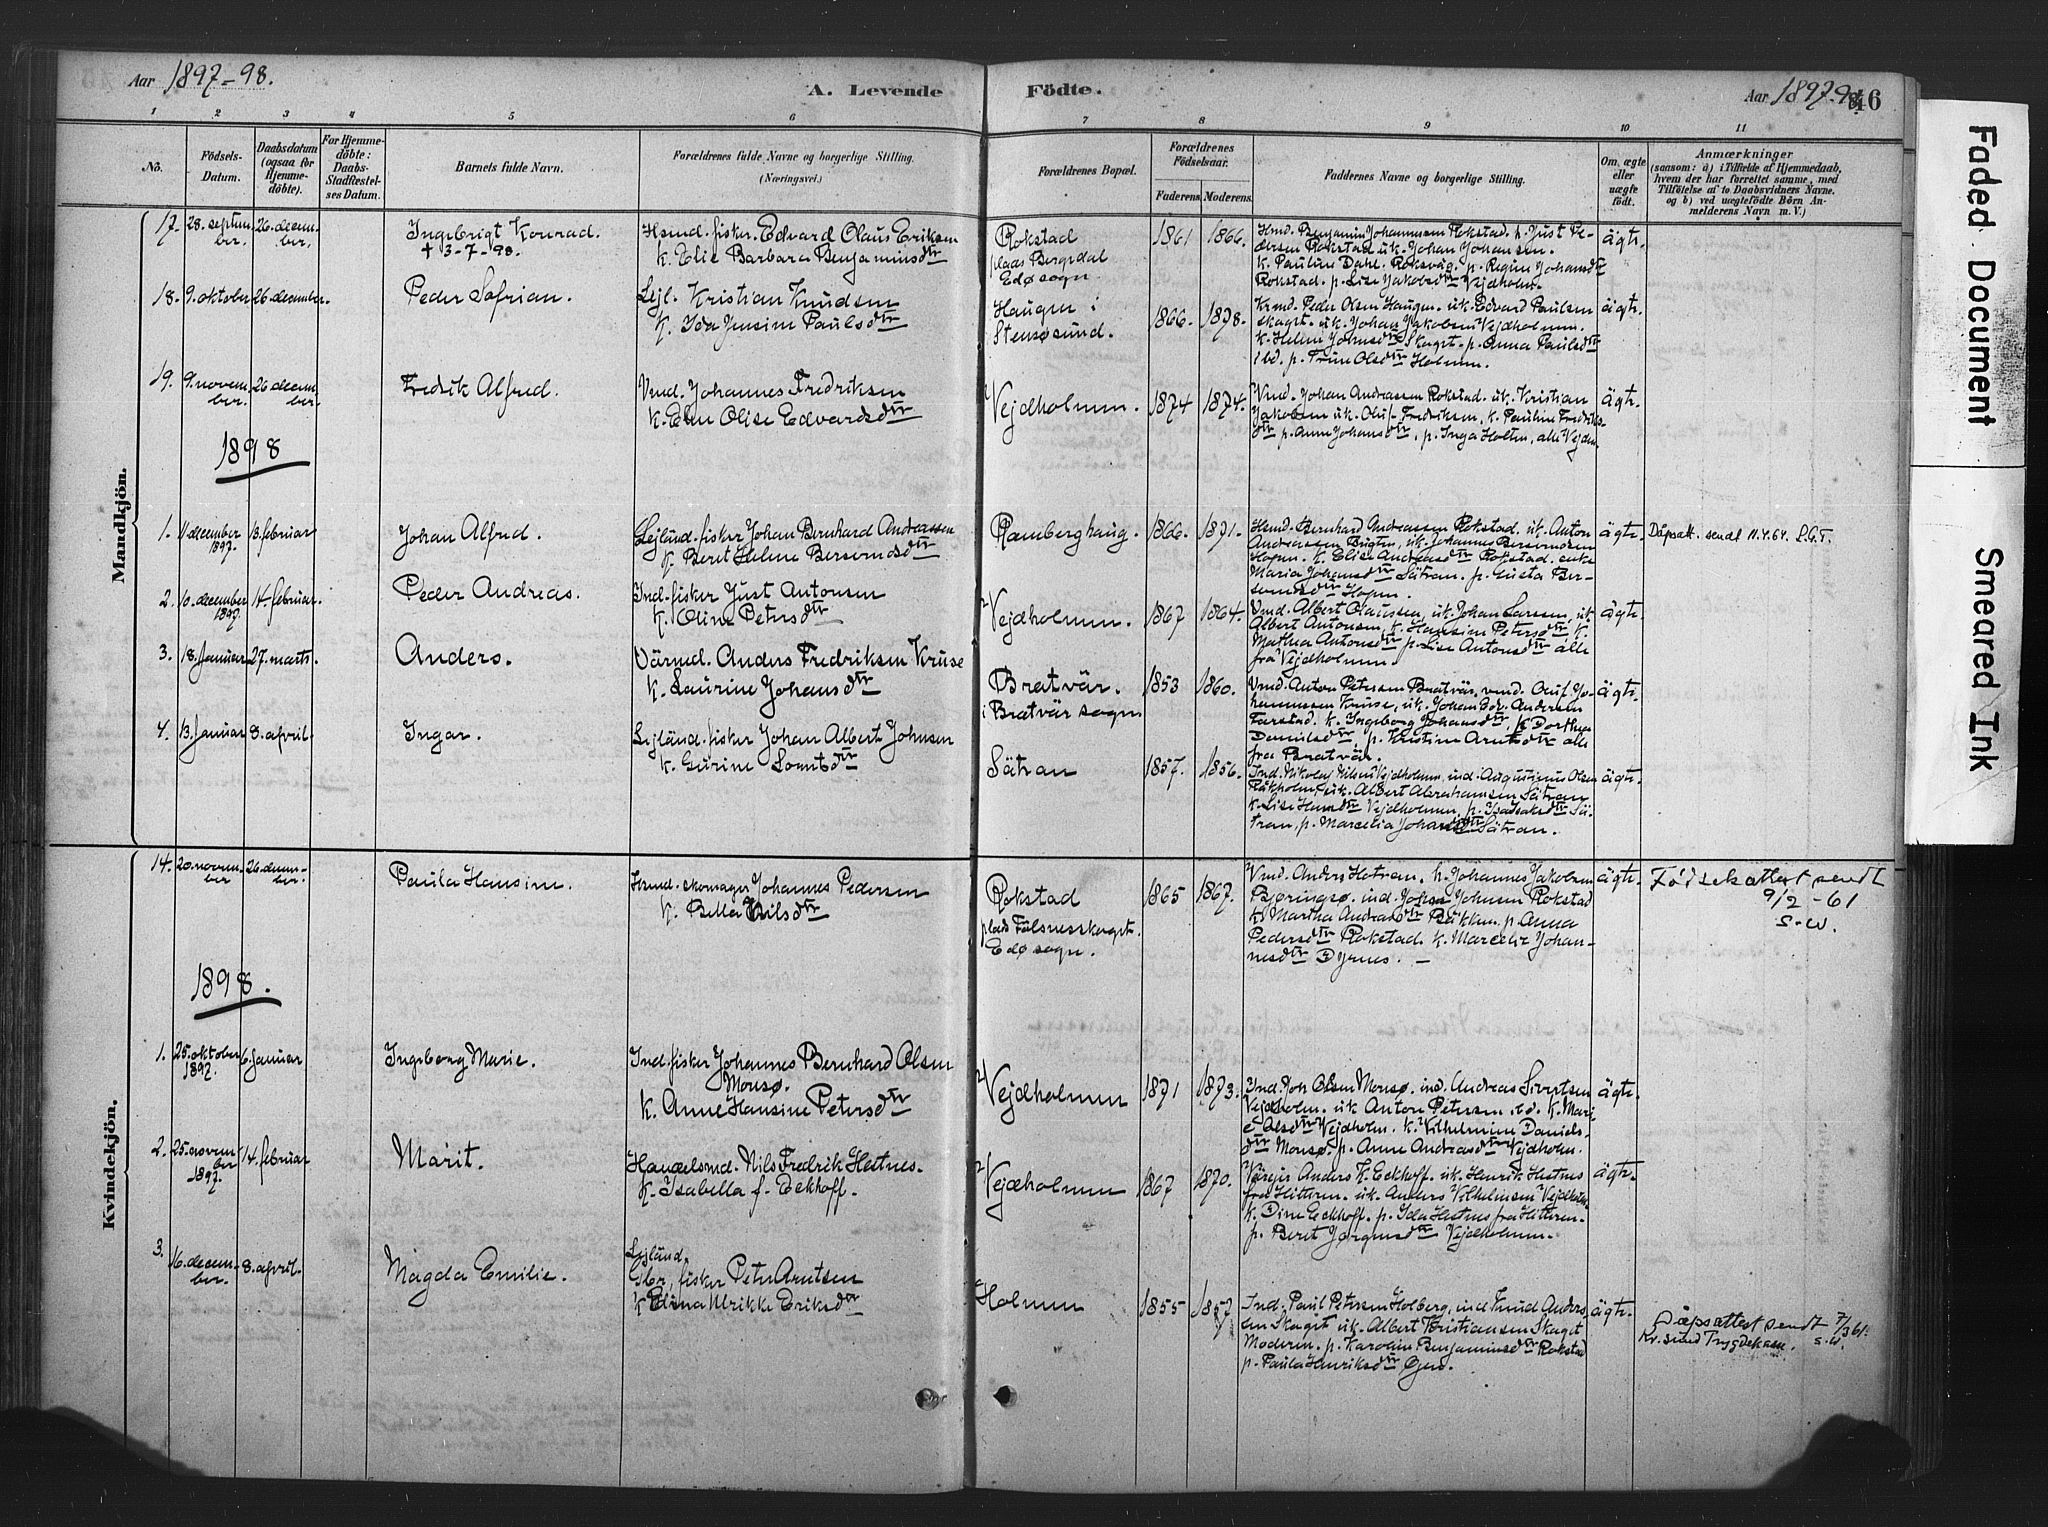 Aar 1897-98.
A. Levende Födte.
Aar 1897-98.
46
1 2 3 4 5 6 7 8 9 10 11
No.
Födsels-
Datum.
Daabsdatum
(ogsaa for
Hjemme-
döbte).
For Hjemme-
döbte:
Daabs-
Stadfæstel-
ses Datum.
Barnets fulde Navn.
Forældrenes fulde Navne og borgerlige Stilling.
(Næringsvei.)
Forældrenes Bopæl.
Forældrenes
Födselsaar.
Faderens. Moderens.
Faddernes Navne og borgerlige Stilling.
Om ægte
eller
uægte
födt.
Anmærkninger
(saasom: a) i Tilfælde af Hjemmedaab,
hvem der har forrettet samme, med
Tilföielse af to Daabsvidners Navne,
og b) ved uægtefödte Börn An-
melderens Navn m. V.)
Mandkjön.
17. 28. septem-
ber.
26. decem-
ber.
Ingebrigt Konrad.
† 3-7-98.
Hsmd. fisker. Edvard Olaus Eriksen
k. Elie Barbara Benjaminsdtr
Rokstad
plads Bergsdal
Edø sogn
1861 1866.
Hsmd. Benjamin Johannesen Rokstad. h. Just Pe-
dersen Rokstad. uk. Johan Johansen.
k. Pauline Dahl. Roksvåg. p. Regine Johansdtr
Rokstad. p. Lise Jakobsdtr Vejdholm.
ägte.
18. 9. oktober 26. december.
Peder Safrian.
Lejl. Kristian Knudsen
k. Ida Jensine Paulsdtr
Haugen i
Stensøsund.
1866. 1878.
Kmd. Peder Olsen Haugen. uk. Edvard Paulsen
Skaget. uk. Johan Jakobsen Vejdholmen.
k. Helene Johnsdtr Skaget. p. Anna Paulsdtr
ibd. p. Trine Olsdtr Holmen.
ägte.
19. 9. novem-
ber.
26. decem-
ber.
Fredrik Alfred.
Vmd. Johannes Fredriksen
k. Elen Olise Edvardsdtr
Vejdholmen.
1874 1874.
Vmd. Johan Andreassen Rokstad. uk. Kristian
Jakobsen uk. Oluf Fredriksen, k. Pauline Fredriks-
dtr p. Anne Johansdtr, p. Inga Holten, alle Vejdm
ägte.
1898
1. 11. december
1897.
13. februar
Johan Alfred.
Lejländ. fisker Johan Bernhard Andreassen
k. Berit Helene Bersvendsdtr
Ramberghaug.
1866. 1871.
Hsmd. Bernhard Andreassen Rokstad. uk. Anton
Andreassen Bugten, uk. Johannes Bersvendsen
Hopen. k. Elise Andreasdtr Rokstad. enke
Maria Johansdtr Sätran. p. Gusta Ber-
svendsdtr Hopen.
ägte.
Dåpsatt. sendt 11.4.64. S.G.T.
2. 10. december
1897.
14. februar.
Peder Andreas.
Ind. fisker Just Antonsen
k. Oline Petersdtr
Vejdholmen.
1867 1864.
Vmd. Albert Olaussen, uk. Johan Larssen, uk.
Albert Antonsen, k. Hansine Petersdtr k.
Mathea Antonsdtr p. Lise Antonsdtr alle
fra Vejdholmen.
ägte.
3. 18. Januar 27. marts.
Anders.
Värmd. Anders Fredriksen Kruse
k. Laurine Johansdtr
Bratvär.
i Bratvär sogn
1853 1860.
Vmd. Anton Petersen Bratvär, vmd. Oluf Jo-
hannessen Kruse, uk. Johan Edv. Andersen
Farstad. k. Ingeborg Johansdtr, k. Dorthea
Danielsdtr, p. Kristine Arntsdtr alle
fra Bratvär.
ägte.
4. 13. Januar 8. april.
Ingar.
Lejländ. fisker Johan Albert Johnsen
k. Gurine Lomtsdtr
Sätran
1857. 1856.
Ind. Nikolaj Nilsen Vejdholmen, ind. Augustinus Olsen
Råkholm, uk. Albert Abrahamsen Sätran
k. Lise Hansdtr Vejdholmen, p. Isaksdtr Sä-
tran, p. Marcelia Johansdtr Sätran.
ägte.
Kvindekjön.
14. 20. novem-
ber
26. decem-
ber.
Paula Hansine.
Hsmd. skomager Johannes Pedersen
k. Bella Nilsdtr
Rokstad
plads Fålnesskaget.
Edø sogn.
1865 1867.
Vmd. Anders Hotran. h. Johannes Jakobsen
Bjøringsø. ind. Johan Johnsen Rokstad
k. Martha Andreasdtr Bakken. p. Anna
Pedersdtr Rokstad. k. Marcelie Johan-
nesdtr Dyrnes. —
ägte.
Födselsattest sendt
9/2 - 61
S.W.
1898.
1. 25. oktober
1897.
6. Januar
Ingeborg Marie.
Ind. fisker Johannes Bernhard Olsen
Monsø.
k. Anne Hansine Petersdtr
Vejdholmen
1871 1873.
Ind. Joh. Olsen Monsø. ind. Andreas Sivertsen
Vejdholm. uk. Anton Petersen ibd. k. Mari-
e Olsdtr Vejdholm. k. Vilhelmine Daniels-
dtr Monsø. p. Anne Andreasdtr Vejdholm.
ägte.
2. 25. novem
ber
1897.
14. februar
Marit.
Handelsmd. Nils Fredrik Hestnes.
k. Isabella f. Eckhoff.
Vejdholmen
1867 1870.
Värejer Anders K. Eckhoff. uk. Henrik Hestnes
fra Hitteren. uk. Anders Vilhelmsen Vejdholm.
k. Dine Eckhoff. p. Ida Hestnes fra Hitteren.
p. Beret Jørgensdtr Vejdholmen.
ägte.
3. 16. decem-
ber.
8. april.
Magda Emilie.
Lejländ.
Gbr. fisker Peter Arntsen
k. Elina Ulrikke Eriksdtr
Holmen
1855 1857.
Ind. Paul Petersen Holberg, ind. Knud Anders-
sen Skaget. uk. Albert Kristiansen Skaget.
Moderen. p. Karoline Benjaminsdtr Rokstad
p. Paula Henriksdtr Øien.
ägte.
Dåpsattest sendt 7/3 61.
Kr.sund Trygdekasse. S.W.
Faded Document
Smeared Ink